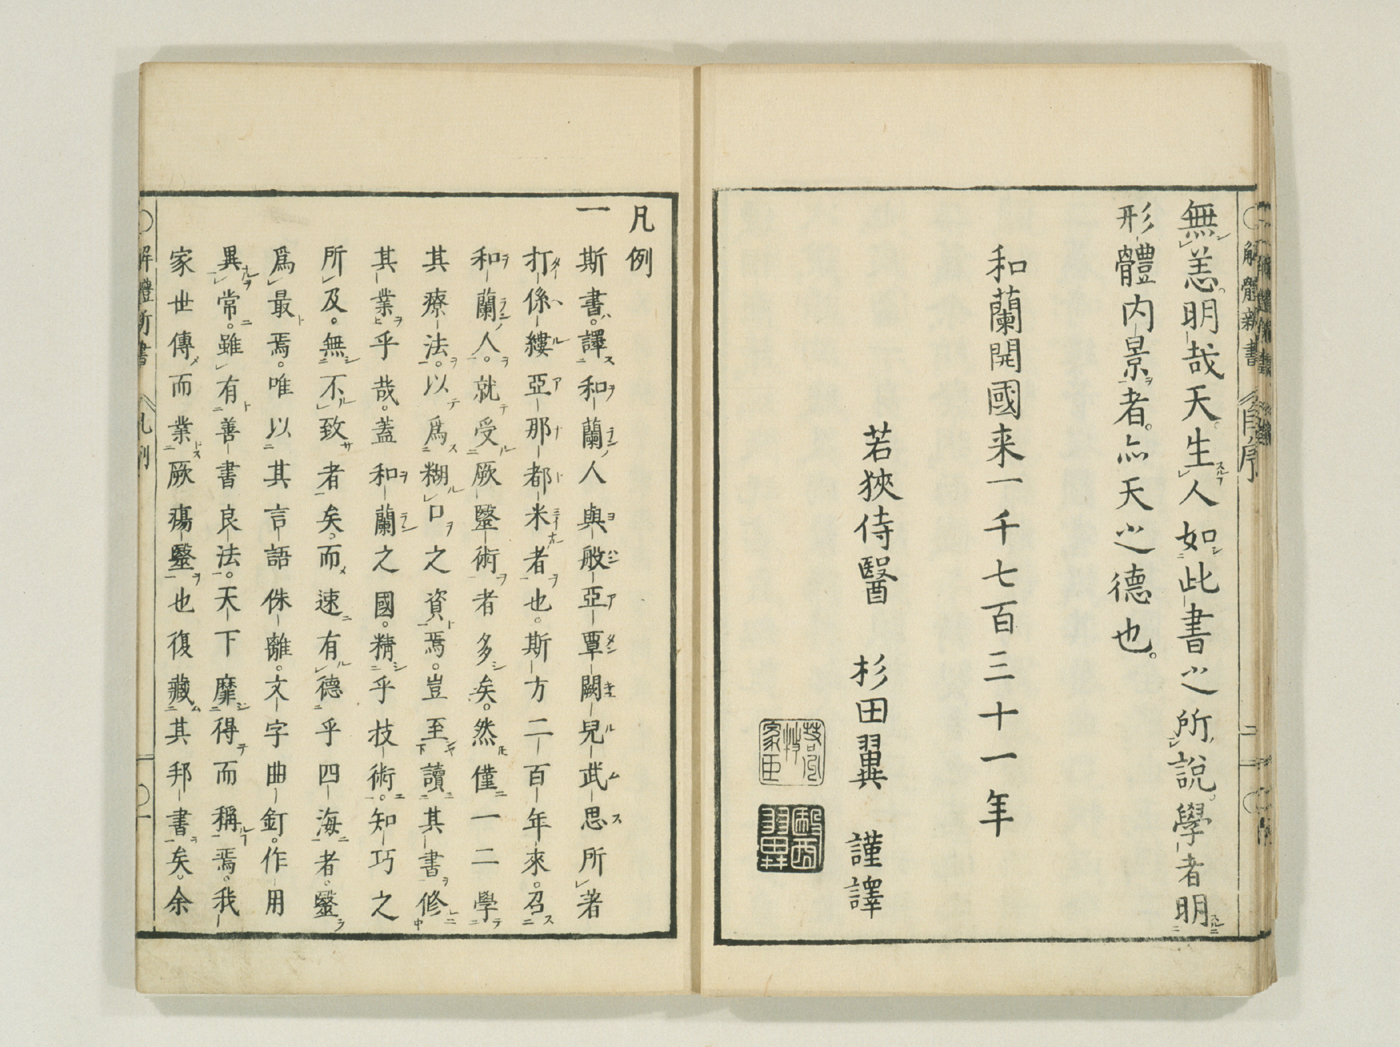 解體新書 自序 二
無恙明哉天生人如此書之所說學者明
形體内景者。亦天之德也。
和蘭開國来一千七百三十一年
若狹侍醫 杉田翼 謹譯
凡例
一斯書。譯和蘭人與般亞單闕兒武思所著
打係縷亞那都米者也。斯方二百年來。召
和蘭人。就受厥毉術者多矣。然僅一二學
其療法。以爲糊口之資焉。豈至讀其書修
其業乎哉。蓋和蘭之國。精乎技術。知巧之
所及。無不致者矣。而速有德乎四海者。毉
爲最焉。唯以其言語侏離。文字曲釘。作用
異常。雖有善書良法。天下靡得而稱焉。我
家世傳而業厥瘍毉也復藏其邦書矣。余
解體新書 凡例 一